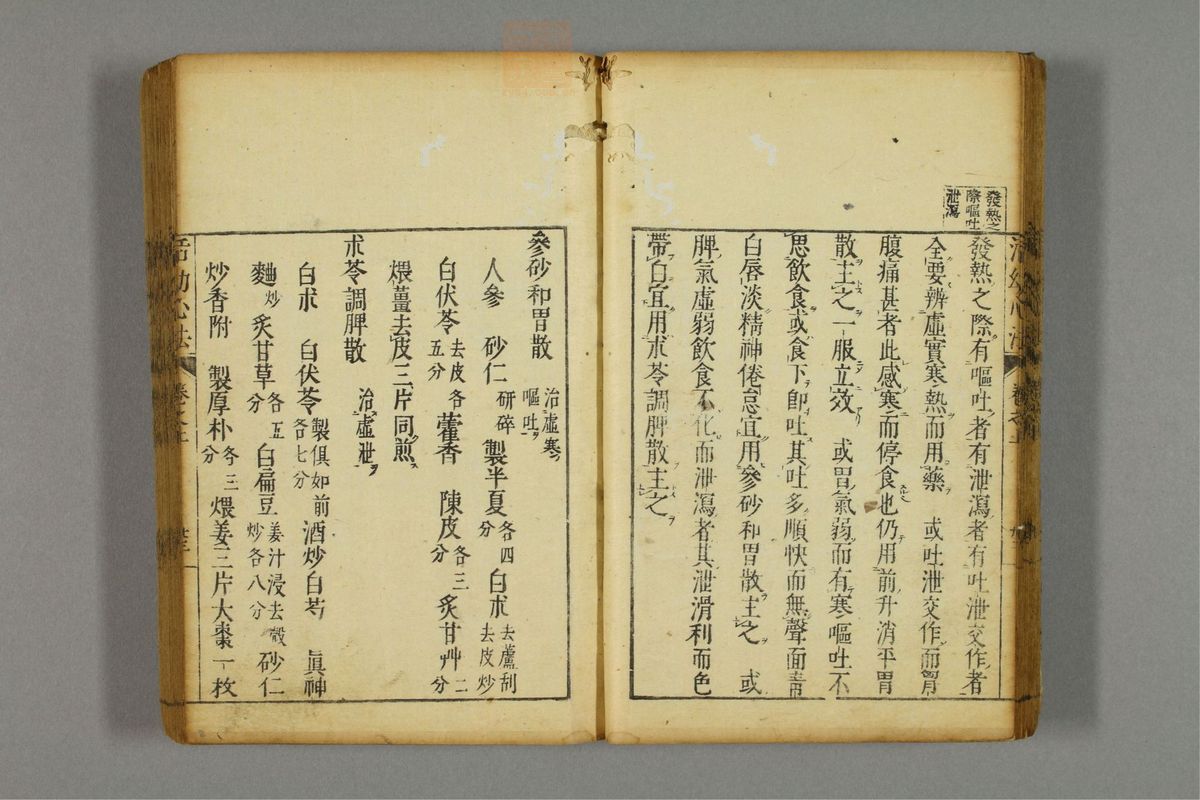 發熱之
際嘔吐
泄瀉
發熱之際有嘔吐者有泄瀉者有吐泄交作者
全要辨虛實寒熱而用藥　或吐泄交作而胃
腹痛甚者此感寒而停食也仍用前升消平胃
散主之一服立效　或胃氣弱而有寒嘔吐不
思飲食或食下卽吐其吐多順快而無聲面青
白唇淡精神倦怠宜用參砂和胃散主之　或
脾氣虛弱飲食不化而泄瀉者其泄滑利而色
帶白宜用朮苓調脾散主之
參砂和胃散　治虛寒嘔吐
人參　砂仁研碎　製半夏各四分　白朮去蘆刮去皮炒
白伏苓去皮各五分　藿香　陳皮各三分　炙甘艸二分
煨薑去皮三片同煎
朮苓調脾散　治虛泄
白朮　白伏苓製俱如前各七分　酒炒白芍　眞神
麯炒　炙甘草各五分　白扁豆姜汁浸去殼炒各八分　砂仁
炒香附　製厚朴各三分　煨姜三片大棗一枚
活幼心法　卷之